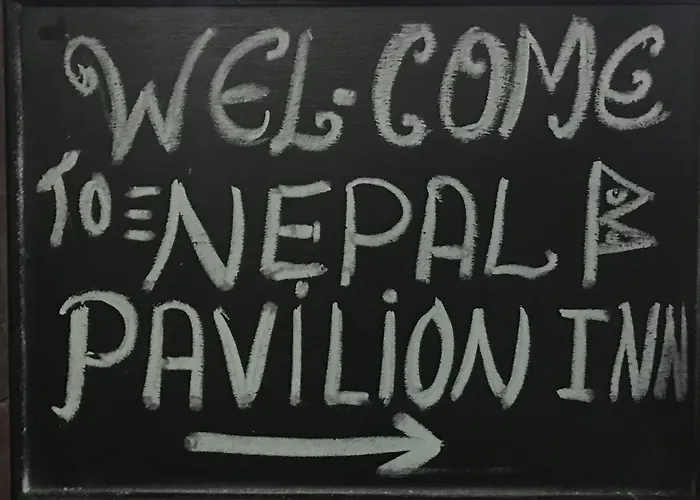 WEL-COME
TO NEPAL
PAViLiON INN